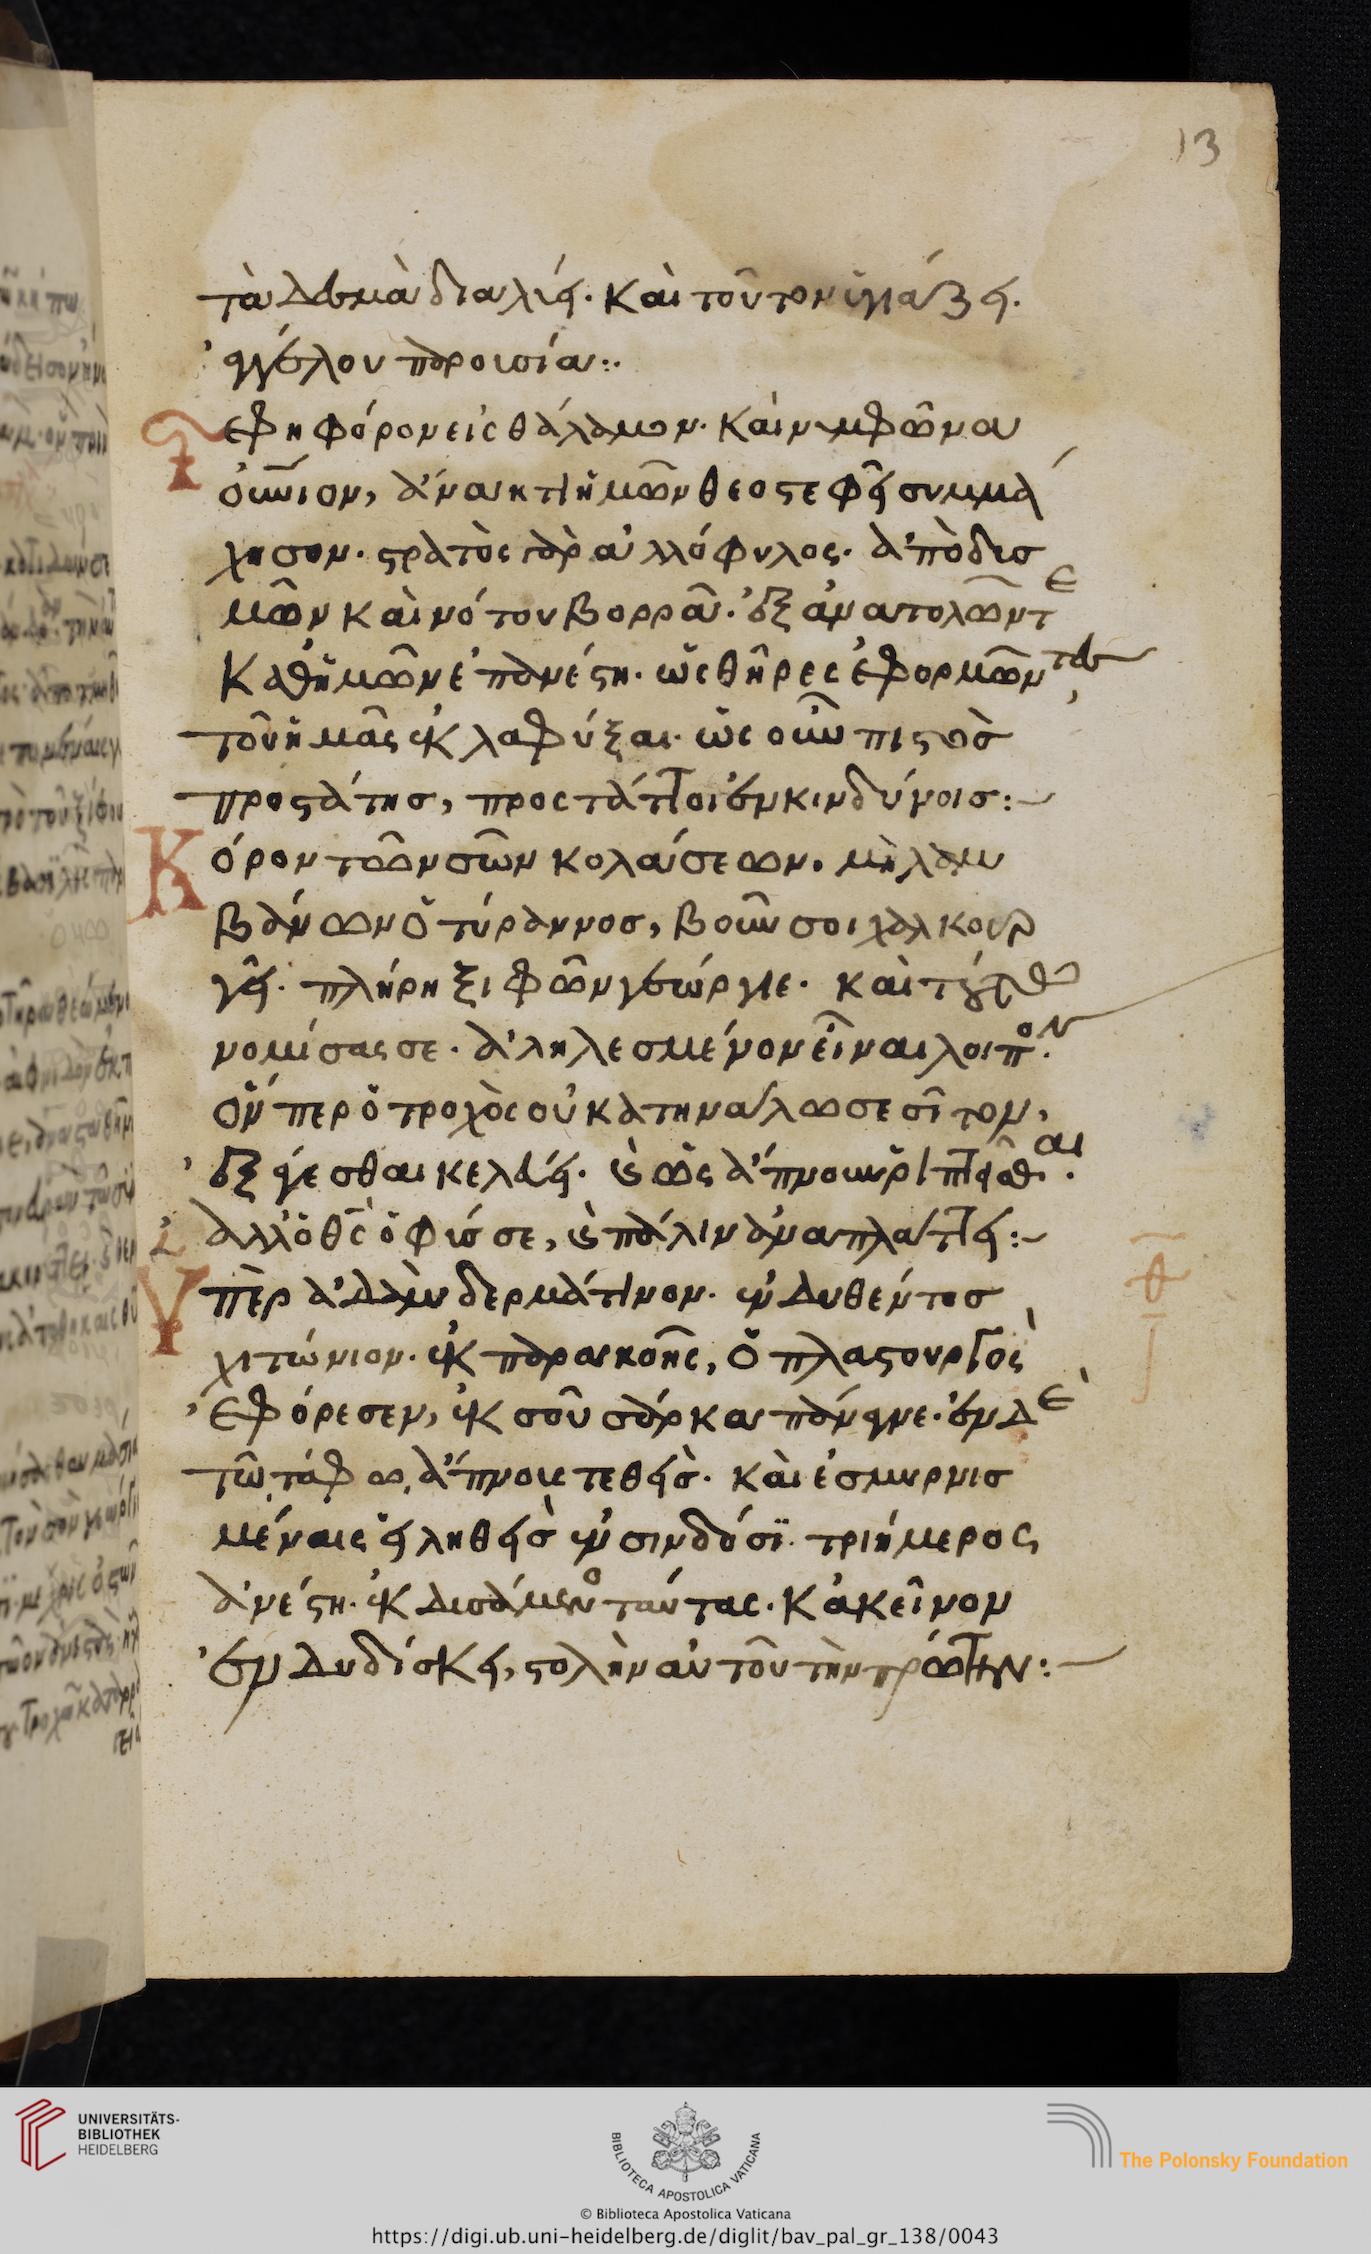 13
τὰ δεσμὰ διαλύει. καὶ τοῦτον ὑγιάζει.
ἀγγέλου παρουσία:.
Στεφηφόρον εἰς θάλαμον. καὶ νυμφῶνα
σῶν, ἄνακτι ἡμῶν θεοστεφεῖ συμμά
χησον. στρατὸς γὰρ ἀλλόφυλος. ἀπὸ δυσ
μῶν καὶ νότου βορρᾶ. ἐξ ἀνατολῶν τε
καθ' ἡμῶν ἐπανέστη. ὡς θῆρες ἐφορμῶνται
τοῦ ἡμᾶς ἐκλαφύξαι. ὡς οὖν πιστὸς
προστάτης, προστάττοι ἐν κινδύνοις:
Κόρον τῶν σῶν κολάσεων. μὴ λαμ
βάνων ὁ τύραννος, βοῦν σοι χαλκουρ
γεῖ. πλήρη ξιφῶν γεώργιε. καὶ
νομίσας σε. ἀληλεσμένον εἶναι λοιπόν.
ὅνπερ ὁ τροχὸς οὐ κατηνάλωσε σῖτον,
ἐξάγεσθαι κελεύει. καὶ ὡς ἄπνουν ῥίπτεσθαι.
ἀλλ' ὁ θς ὁ φύσας σε, καὶ πάλιν ἀναπλάττει:
Ὑπὲρ ἀδὰμ δερμάτινον. ἐνδυθέντος
χιτώνιον. ἐκ παρακοῆς, ὁ πλαστουργὸς
ἐφόρεσεν, ἐκ σοῦ σάρκα πάναγνε. ἐν δὲ
τῷ τάφῳ ἄπνους τεθεὶς. καὶ ἐσμυρνισ
μέναις εἰληθεὶς ἐν σινδόσι. τριήμερος
ἀνέστη. ἐκδυσάμενος ταύτας. κἀκεῖνον
ἐνδυδίσκει, στολὴν αὐτοῦ τὴν πρώτην:
UNIVERSITÄTS-
BIBLIOTHEK
HEIDELBERG
BIBLIOTECA APOSTOLICA VATICANA
The Polonsky Foundation
© Biblioteca Apostolica Vaticana
https://digi.ub.uni-heidelberg.de/diglit/bav_pal_gr_138/0043